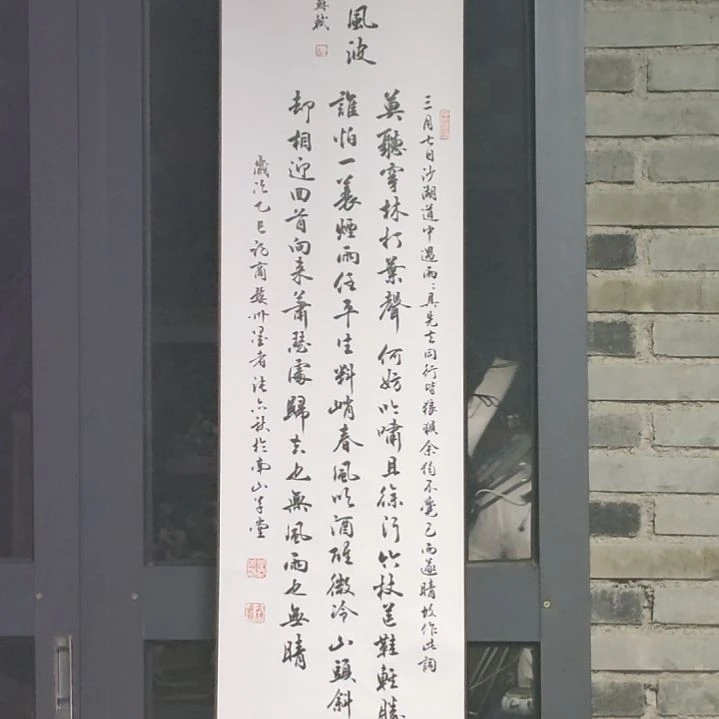 風波
蘇軾
三月七日沙湖道中遇雨〻具先去同行皆狼狽余獨不覺已而遂晴故作此詞
莫聽穿林打葉聲何妨吟嘯且徐行竹杖芒鞋輕勝
誰怕一蓑煙雨任平生料峭春風吹酒醒微冷山頭斜
却相迎回首向来蕭瑟處歸去也無風雨也無晴
歲次乙巳初商婺州墨者於南山草堂